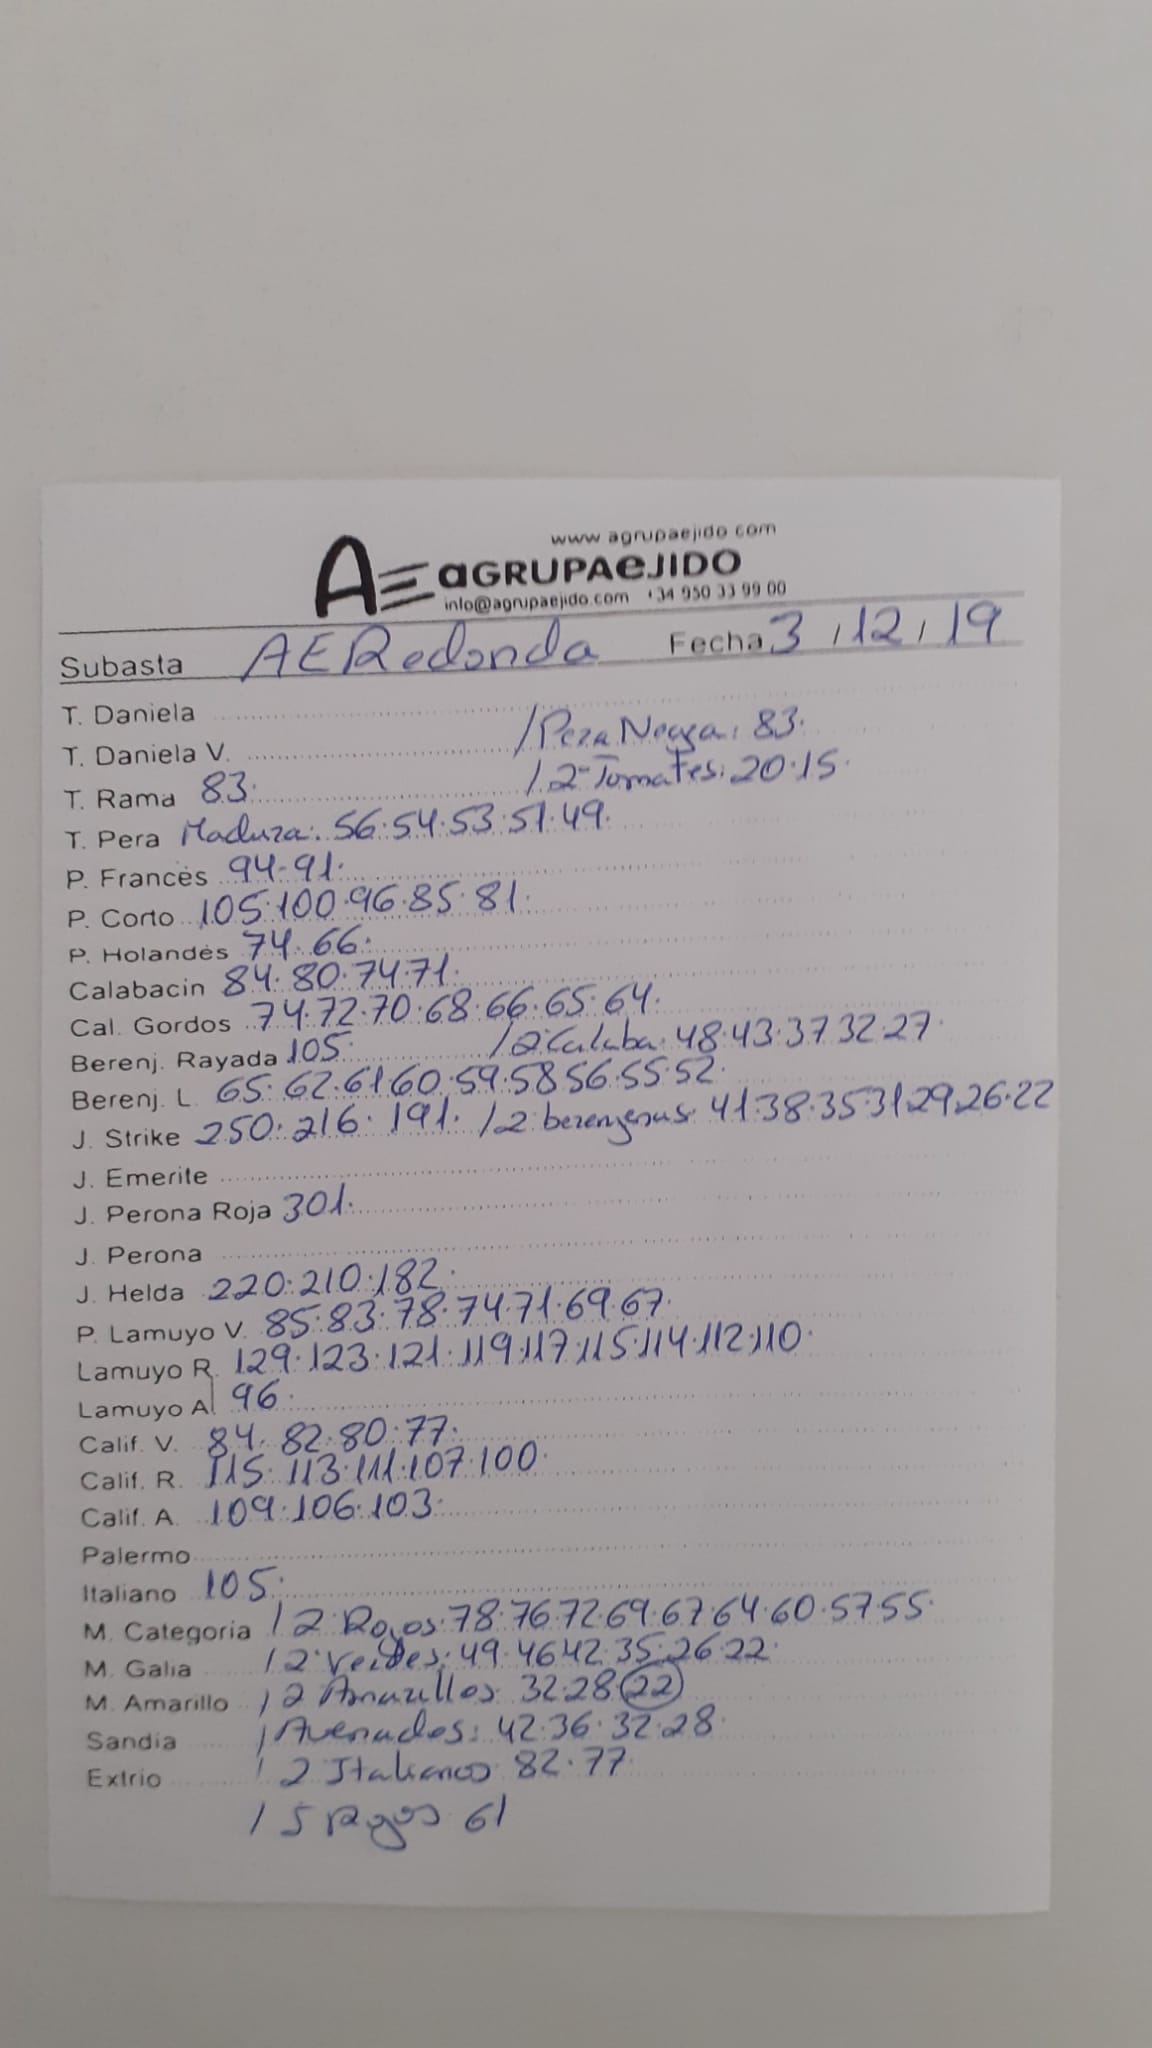 www agrupaejido com
AE aGRUPAeJIDO
info@agrupaejido.com +34 950 33 99 00
Subasta AE Redonda Fecha 3 / 12 / 19
T. Daniela
T. Daniela V. / Pera Negra: 83.
T. Rama 83. / 2ª Tomates: 20.15.
T. Pera Madura: 56.54.53.51.49.
P. Francés 94-91.
P. Corto 105.100.96.85.81.
P. Holandés 74.66.
Calabacin 84.80.74.71.
Cal. Gordos 74.72.70.68.66.65.64.
Berenj. Rayada 105. / 2 Calaba. 48.43.37.32.27.
Berenj. L. 65.62.61.60.59.58.56.55.52.
J. Strike 250.216.191. / 2 berengenas. 41.38.35.31.29.26.22
J. Emerite
J. Perona Roja 301.
J. Perona
J. Helda 220.210.182.
P. Lamuyo V. 85.83.78.74.71.69.67.
Lamuyo R. 129.123.121.119.117.115.114.112.110.
Lamuyo A. 96.
Calif. V. 84.82.80.77.
Calif. R. 115.113.111.107.100.
Calif. A. 109.106.103.
Palermo
Italiano 105.
M. Categoria / 2 Rojos: 78.76.72.69.67.64.60.57.55.
M. Galia / 2 Verdes: 49.46.42.35.26.22.
M. Amarillo / 2 Amarillos 32.28.22
Sandia / Avenados: 42.36.32.28.
Extrio / 2 Italianos 82.77.
/ S Rojos 61